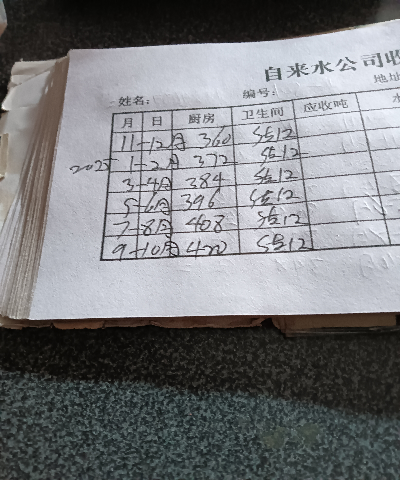 自来水公司收
姓名： 编号： 地址
月 日 厨房 卫生间 应收吨 水
11-12月 360 12
2025 1-2月 372 12
3-4月 384 12
5-6月 396 12
7-8月 408 12
9-10月 420 12